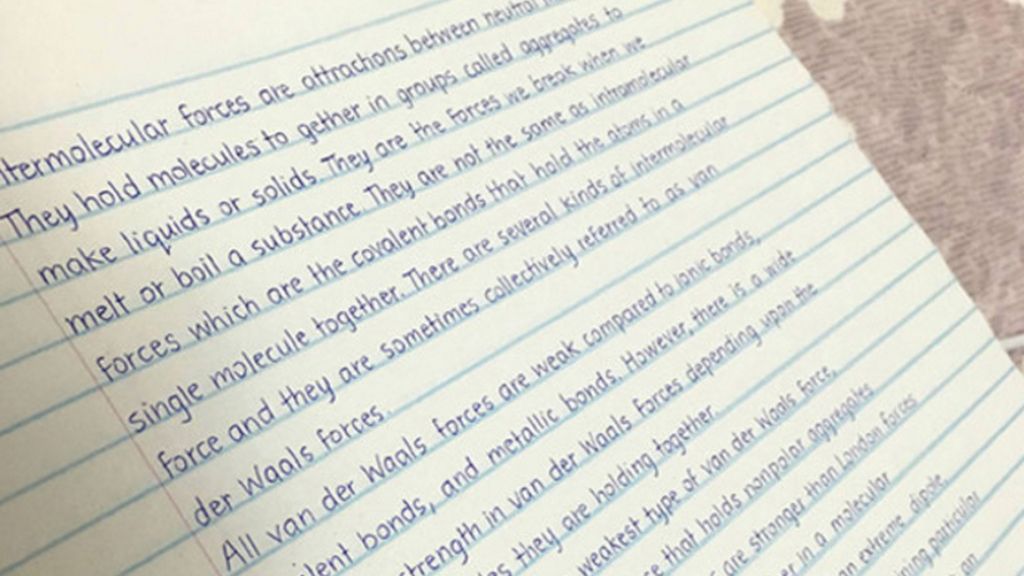 ntermolecular forces are attractions between neutral
They hold molecules to gether in groups called aggregates to
make liquids or solids. They are the forces we break when we
melt or boil a substance. They are not the same as intramolecular
forces which are the covalent bonds that hold the atoms in a
single molecule together. There are several kinds of intermolecular
force and they are sometimes collectively referred to as van
der Waals forces.
All van der Waals forces are weak compared to ionic bonds,
lent bonds, and metallic bonds. However, there is a wide
strength in van der Waals forces depending upon the
es they are holding together.
weakest type of van der Waals force,
ce that holds nonpolar aggregates
are stronger than London forces
er in a molecular
an extreme dipole,
ining particular
an